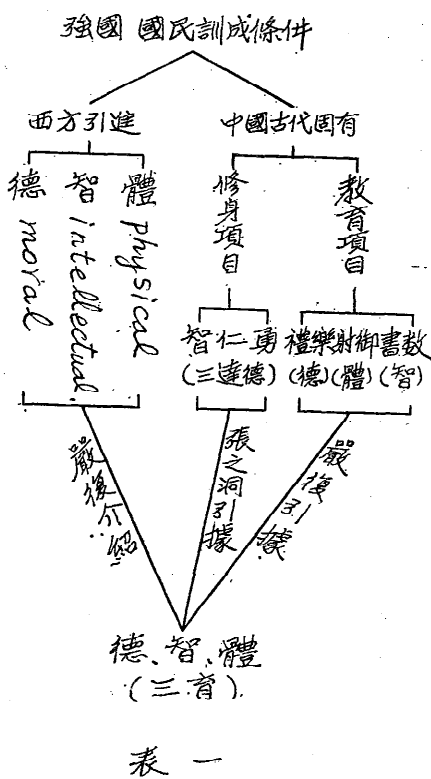 強國 國民訓成條件
西方引進
中國古代固有
德 moral
智 intellectual
體 physical
修身項目
教育項目
智仁勇
(三達德)
禮樂射御書数
(德)(體)(智)
嚴復介紹
張之洞引據
嚴復引據
德、智、體
(三育)
表一